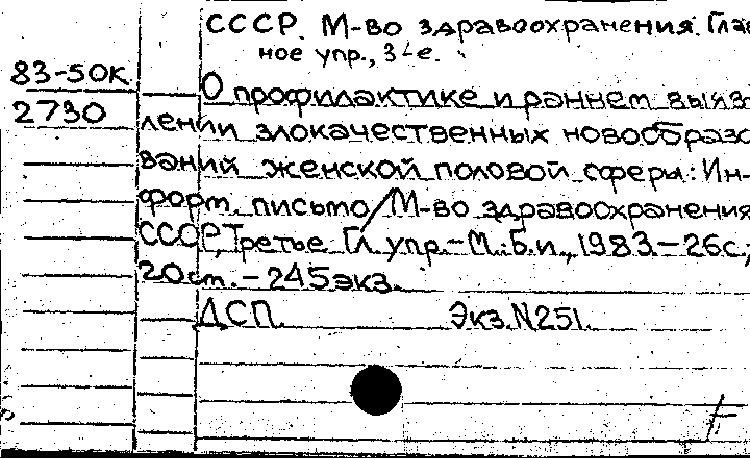 СССР. М-во здравоохранения. Глав
ное упр., 3-е.
83-50к.
2730
О профилактике и раннем выяв
лении злокачественных новообразо
ваний женской половой сферы: Ин-
форм. письмо / М-во здравоохранения
СССР, Третье Гл. упр. - М.: Б.и., 1983. - 26с.;
20см. - 245экз.
ДСП. Экз. N251.